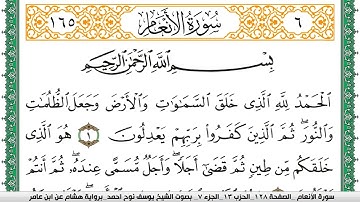 ٦ سُورَةُ الأَنْعَامِ ١٦٥
بِسْمِ ٱللَّهِ ٱلرَّحْمَٰنِ ٱلرَّحِيمِ
ٱلْحَمْدُ لِلَّهِ ٱلَّذِى خَلَقَ ٱلسَّمَٰوَٰتِ وَٱلْأَرْضَ وَجَعَلَ ٱلظُّلُمَٰتِ
وَٱلنُّورَ ۖ ثُمَّ ٱلَّذِينَ كَفَرُوا۟ بِرَبِّهِمْ يَعْدِلُونَ ١ هُوَ ٱلَّذِى
خَلَقَكُم مِّن طِينٍ ثُمَّ قَضَىٰٓ أَجَلًا ۖ وَأَجَلٌ مُّسَمًّى عِندَهُۥ ۖ ثُمَّ أَنتُمْ
سورة الأنعام _الصفحة ١٢٨_ الحزب ١٣_ الجزء ٧ _ بصوت الشيخ يوسف نوح احمد _برواية هشام عن ابن عامر